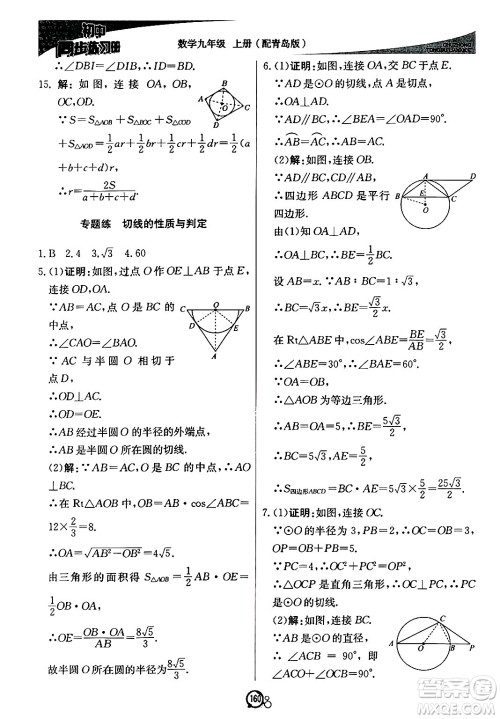 初中
同步练习册
数学九年级 上册(配青岛版)
∴∠DBI=∠DIB,∴ID=BD.
15. 解:如图,连接 OA,OB,OC,
OD.
∵S=S△AOB+S△BOC+S△COD+
S△AOD=½ar+½br+½cr+½dr
=½(a+b+c+d)r,
∴r=2S/(a+b+c+d).
专题练 切线的性质与判定
1. B 2. 4 3. √3 4. 60
5. (1)证明:如图,过点 O 作 OE⊥AB 于点 E,
连接 OD,OA.
∵AB=AC,点 O 是 BC 的
中点,
∴∠CAO=∠BAO.
∵ AC 与半圆 O 相切于
点 D,
∴OD⊥AC.
∵OE⊥AB,
∴OD=OE.
∴AB 经过半圆 O 的半径的外端点,
∴AB 是半圆 O 所在圆的切线.
(2)解:∵AB=AC,O 是 BC 的中点,
∴AO⊥BC.
在 Rt△AOB 中,OB=AB·cos∠ABC=
12×2/3=8.
∴OA=√(AB²-OB²)=4√5.
由三角形的面积得 S△AOB=½AB·OE=
½OB·OA,
∴OE=OB·OA/AB=8√5/3.
故半圆 O 所在圆的半径为8√5/3.
6. (1)证明:如图,连接 OA,交 BC 于点 E.
∵AD 是⊙O 的切线,
∴OA⊥AD.
∵AD∥BC,∴∠BEA=∠OAD=90°.
∴OA⊥BC,
∴AB⌒=AC⌒,∴AB=AC.
(2)解:如图,连接 OB.
∵AD∥BC,AB∥CD,
∴四边形 ABCD 是平行
四边形,
∴AD=BC.
由(1)知OA⊥BC,
∴BE=½BC.
设 AB=x,∵AB∶BC=1∶√3,
∴BC=√3x,BE=√3/2x.
在 Rt△ABE 中,cos∠ABE=BE/AB=√3/2.
∴∠ABE=30°,∴∠BAE=60°.
∵OA=OB,
∴△ABO 为等边三角形.
∴AB=OA=5,
∴BE=5√3/2,∴BC=5√3,AE=5/2,
∴S四边形ABCD=5√3×5/2=25√3/2.
7. (1)证明:如图,连接 OC.
∵⊙O 的半径为 3,PB=2,
∴OC=OB=3,OP=OB+PB=5.
∵PC=4,∴OC²+PC²=OP²,
∴△OCP 是直角三角形,∴OC⊥PC,
∴PC 是⊙O 的切线.
(2)解:如图,连接 BC.
∵AB 是⊙O 的
直径,
∴∠ACB=90°,
160